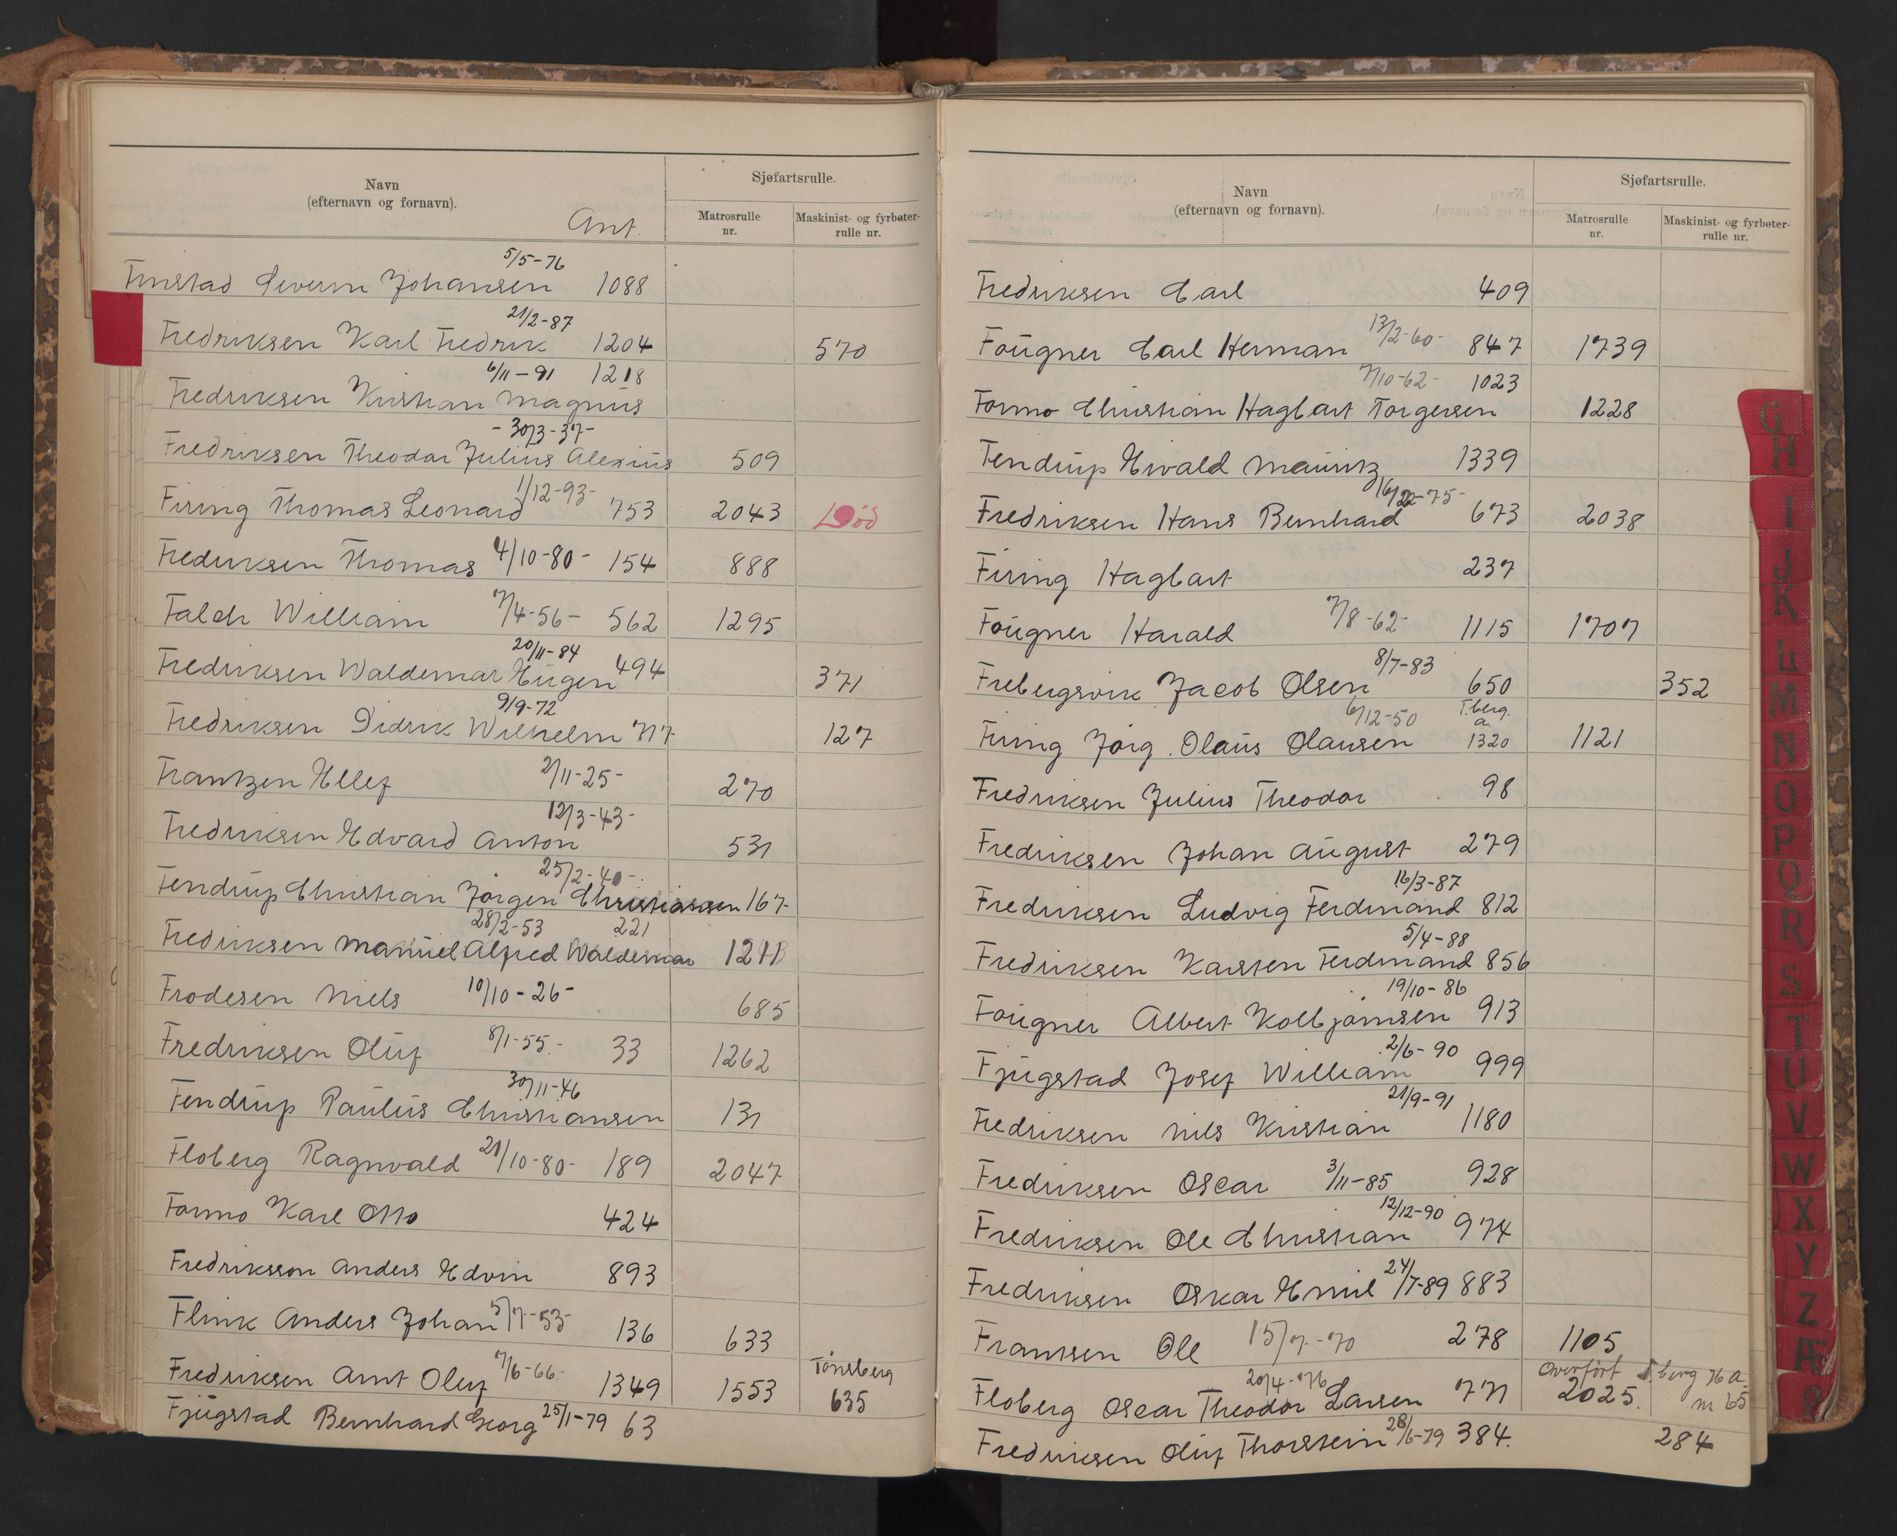 Navn
(efternavn og fornavn).
Ant.
Sjøfartsrulle.
Matrosrulle nr.
Maskinist- og fyrbøterrulle nr.
5/5-76
Finstad Severin Johansen 1088
21/2-87
Fredriksen Karl Fredrik 1204 570
6/11-91 1218
Fredriksen Kristian Magnus
-30/3-37-
Fredriksen Theodor Julius Alexius 509
1/12-93-
Firing Thomas Leonard 753 2043 Død
Fredriksen Thomas 4/10-80- 154 888
Falch William 7/4-56- 562 1295
20/11-84
Fredriksen Waldemar Eugen 494 371
9/9-72
Fredriksen Didrik Wilhelm 717 127
Frantzen Ellef 2/11-25- 270
12/3-43-
Fredriksen Edvard Anton 531
25/2-40-
Fendrup Christian Jørgen Christiansen 167
28/2-53 221
Fredriksen Manuel Alfred Waldemar 1211
Frodesen Niels 10/10-26- 685
Fredriksen Oluf 8/1-55- 33 1262
30/11-46
Fendrup Paulus Christiansen 131
Floberg Ragnvald 21/10-80- 189 2047
Formo Karl Otto 424
Fredriksson Anders Edvin 893
Flink Anders Johan 5/7-53- 136 633
Fredriksen Arnt Oluf 7/6-66- 1349 1553 Tønsberg 635
Fjugstad Bernhard Georg 25/1-79 63
Navn
(efternavn og fornavn).
Sjøfartsrulle.
Matrosrulle nr.
Maskinist- og fyrbøterrulle nr.
Fredriksen Carl 409
Fougner Carl Herman 13/2-60- 847 1739
7/10-62- 1023
Formo Christian Hagbart Torgersen 1228
Fendrup Ewald Mauritz 1339
16/22-75-
Fredriksen Hans Bernhard 673 2038
Firing Hagbart 237
Fougner Harald 7/8-62- 1115 1707
8/7-83
Frebergsvik Jacob Olsen 650 352
6/12-50 T.berg. a.
Firing Jørg. Olaus Olausen 1320 1121
Fredriksen Julius Theodor 98
Fredriksen Johan August 279
16/3-87
Fredriksen Ludvig Ferdinand 812
5/4-88
Fredriksen Karsten Ferdinand 856
19/10-86
Fougner Albert Kolbjørnsen 913
2/6-90
Fjugstad Josef William 999
21/9-91
Fredriksen Nils Kristian 1180
Fredriksen Oscar 3/11-85 928
12/12-90
Fredriksen Ole Christian 974
Fredriksen Oskar Emil 24/7-89 883
Framsen Ole 15/7-70 278 1105
20/4-76 Overført T.berg 76 a
Floberg Oscar Theodor Larsen 771 2025. nr 65
Fredriksen Oluf Thorstein 28/6-79 384. 284
G
H
I
J
K
L
M
N
O
P
Q
R
S
T
U
V
W
X
Y
Z
Æ
Ø